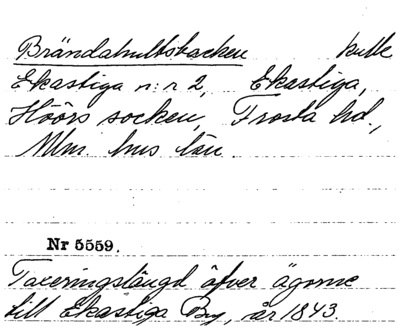 Brändahultsbacken kulle
Ekastiga n:r 2, Ekastiga,
Höörs socken, Frosta hd.,
Mlm. hus län.
Nr 5559.
Taxeringslängd öfver ägorne
till Ekastiga By, år 1843.